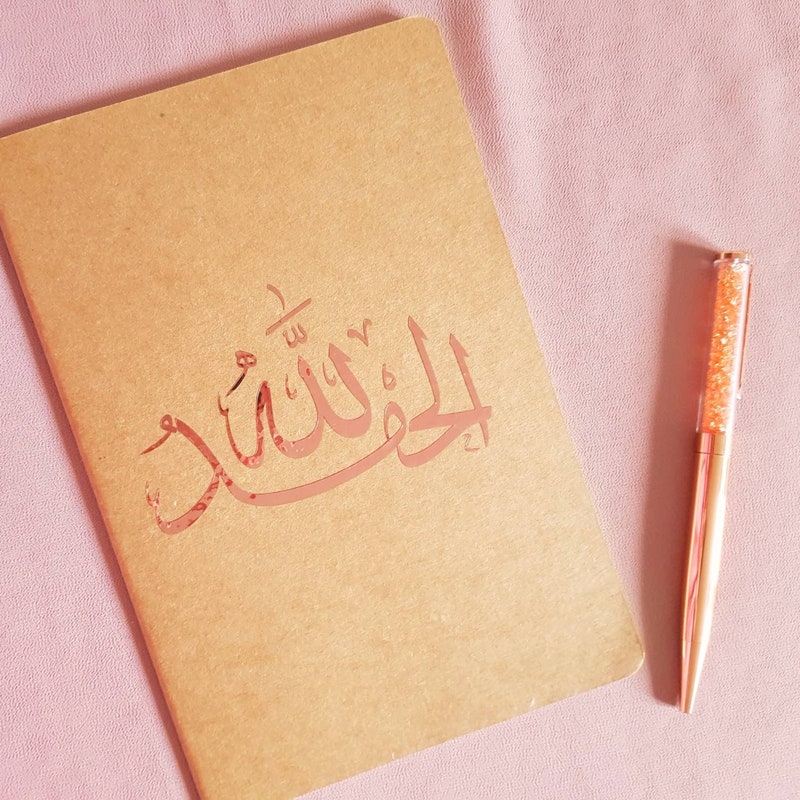 الحمدُ للَّه